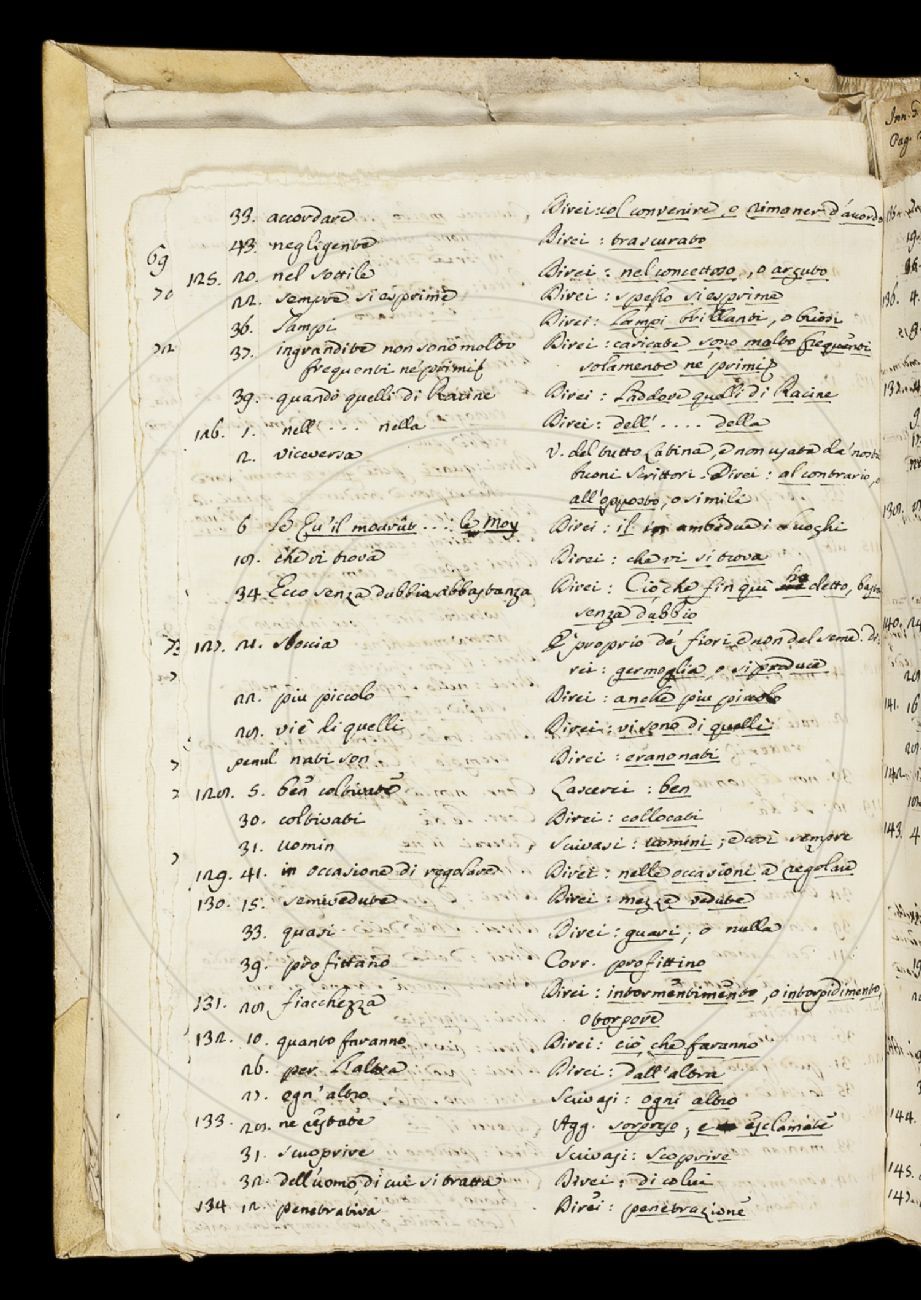 33. accordare Direi: col convenire, o rimaner d'accordo
43. negligente Direi: trascurato
69
125. 20. nel sottile Direi: nel concettoso, o arguto
70
22. sempre si esprime Direi: spesso si esprime
36. Lampi Direi: Lampi brillanti, o
72
37. ingrandite non sono molto Direi: caricate sono molto frequenti
frequenti nè primi solamente nè primi
39. quando quelli di Racine Direi: Laddove quelli di Racine
126. 1. nell' . . . nella Direi: dell' . . . . della
2. viceversa V. del tutto Latina, e non usata da' nostri
buoni Scrittori. Direi: al contrario, o
all'opposto, o simili
6 Le Qu'il mourût . . . : le Moy Direi: il in ambedue i luoghi
che vi trova Direi: che vi si trova
34. Ecco senza dubbio abbastanza Direi: Ciò che fin quì ho detto, basta
senza dubbio
73 127. 21. sboccia È proprio de' fiori, e non del seme. Di-
rei: germoglia, o si produce
22. piu piccolo Direi: anche piu piccolo
28. vi è di quelli Direi: vi sono di quelli
penul nati son Direi: erano nati
128. 5. ben coltivate Lascerei: ben
30. coltivati Direi: collocati
31. uomin Scrivasi: uomini; e così sempre
129. 41. in occasione di regolare Direi: nelle occasioni a regolare
130. 15. semivedute Direi: mezze vedute
33. quasi Direi: guari; o nulla
39. profittano Corr. profittino
131. 28 fiacchezza Direi: intormentimento, o intorpidimento,
o torpore
132. 10. quanto faranno Direi: ciò, che faranno
26. per L'altra Direi: dall'altra
27. ogn' altro Scrivasi: ogni altro
133. 28. ne estate Agg. sorpreso, e esclamate
31. scuoprire Scrivasi: scoprire
32. dell'uomo, di cui si tratta Direi: di colui
134 12. penetrativa Direi: penetrazione